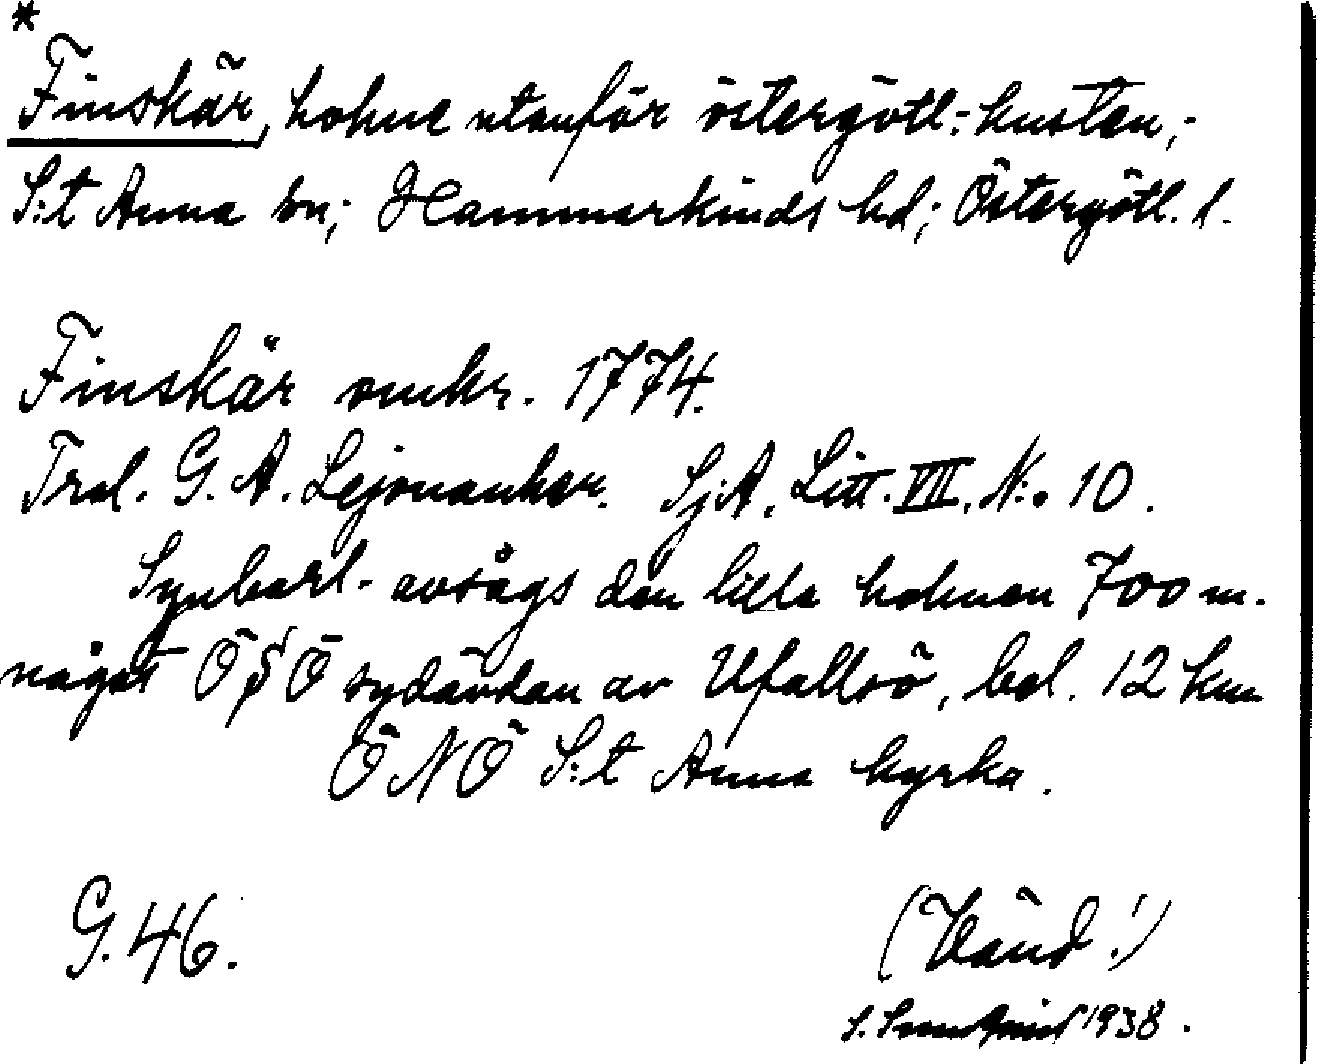 *
Finskär, holme utanför östergötl:-kusten,-
S:t Anna sn; Hammarkinds hd; Östergötl. l.
Finskär omkr. 1774.
Trol. G. A. Lejonanker. Sj:A. Litt. VIII. N:o 10.
Synbarl. avsågs den lilla holmen 700 m.
något ÖSÖ sydändan av Ufallsö, bel. 12 km
ÖNÖ S:t Anna kyrka.
G. 46.
(Vänd!)
S. 1938.